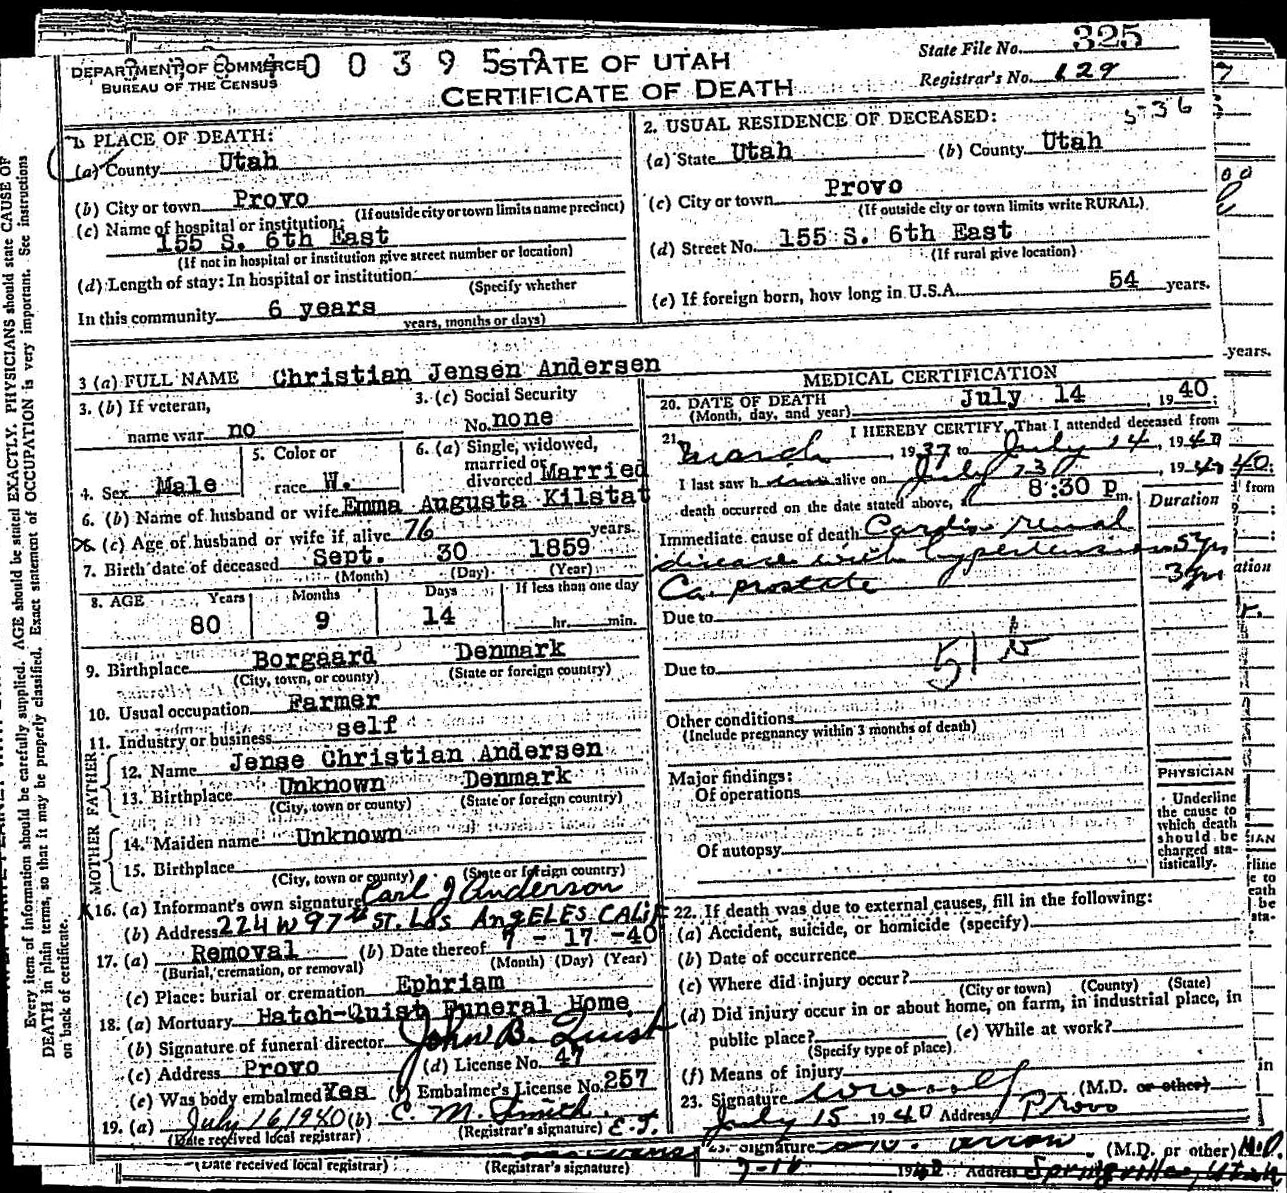 DEPARTMENT OF COMMERCE
BUREAU OF THE CENSUS
400395
STATE OF UTAH
CERTIFICATE OF DEATH
State File No. 325
Registrar's No. 129
5-36
1. PLACE OF DEATH:
(a) County Utah
(b) City or town Provo
(If outside city or town limits name precinct)
(c) Name of hospital or institution:
155 S. 6th East
(If not in hospital or institution give street number or location)
(d) Length of stay: In hospital or institution
(Specify whether
In this community 6 years
years, months or days)
2. USUAL RESIDENCE OF DECEASED:
(a) State Utah (b) County Utah
(c) City or town Provo
(If outside city or town limits write RURAL)
(d) Street No. 155 S. 6th East
(If rural give location)
(e) If foreign born, how long in U.S.A. 54 years.
3 (a) FULL NAME Christian Jensen Andersen
3. (b) If veteran,
name war no
3. (c) Social Security
No. none
4. Sex Male
5. Color or
race W.
6. (a) Single, widowed,
married or
divorced Married
6. (b) Name of husband or wife Emma Augusta Kilstat
(c) Age of husband or wife if alive 76 years.
7. Birth date of deceased Sept. 30 1859
(Month) (Day) (Year)
8. AGE Years Months Days If less than one day
80 9 14 hr. min.
9. Birthplace Borgaard Denmark
(City, town, or county) (State or foreign country)
10. Usual occupation Farmer
11. Industry or business self
FATHER
12. Name Jense Christian Andersen
13. Birthplace Unknown Denmark
(City, town or county) (State or foreign country)
MOTHER
14. Maiden name Unknown
15. Birthplace
(City, town or county) (State or foreign country)
16. (a) Informant's own signature Carl J Anderson
(b) Address 224 W 97th ST. Los ANGELES CALIF
17. (a) Removal (b) Date thereof 7-17-40
(Burial, cremation, or removal) (Month) (Day) (Year)
(c) Place: burial or cremation Ephriam
18. (a) Mortuary Hatch-Quist Funeral Home
(b) Signature of funeral director John B. Quist
(c) Address Provo (d) License No. 47
(e) Was body embalmed Yes (f) Embalmer's License No. 257
19. (a) July 16 1940 (b) C. M. Smith E.T.
(Date received local registrar) (Registrar's signature)
MEDICAL CERTIFICATION
20. DATE OF DEATH July 14, 1940:
(Month, day, and year)
21. I HEREBY CERTIFY, That I attended deceased from
March, 1937 to July 14, 1940
I last saw him alive on July 13, 1940
death occurred on the date stated above, 8:30 P m.
Duration
Immediate cause of death Cardio renal
disease with hypertension 5 yrs
Ca. prostate 3 yrs
Due to
51 b
Due to
Other conditions
(Include pregnancy within 3 months of death)
Major findings:
Of operations
Of autopsy
PHYSICIAN
Underline
the cause to
which death
should be
charged sta-
tistically.
22. If death was due to external causes, fill in the following:
(a) Accident, suicide, or homicide (specify)
(b) Date of occurrence
(c) Where did injury occur?
(City or town) (County) (State)
(d) Did injury occur in or about home, on farm, in industrial place, in
public place? (e) While at work?
(Specify type of place)
(f) Means of injury
23. Signature (M.D. or other)
July 15 1940 Address Provo
23. Signature (M.D. or other) M.D.
7-16 Address Springville, Utah
(Date received local registrar) (Registrar's signature)
Every item of information should be carefully supplied. AGE should be stated EXACTLY. PHYSICIANS should state CAUSE OF
DEATH in plain terms, so that it may be properly classified. Exact statement of OCCUPATION is very important. See instructions
on back of certificate.
years.